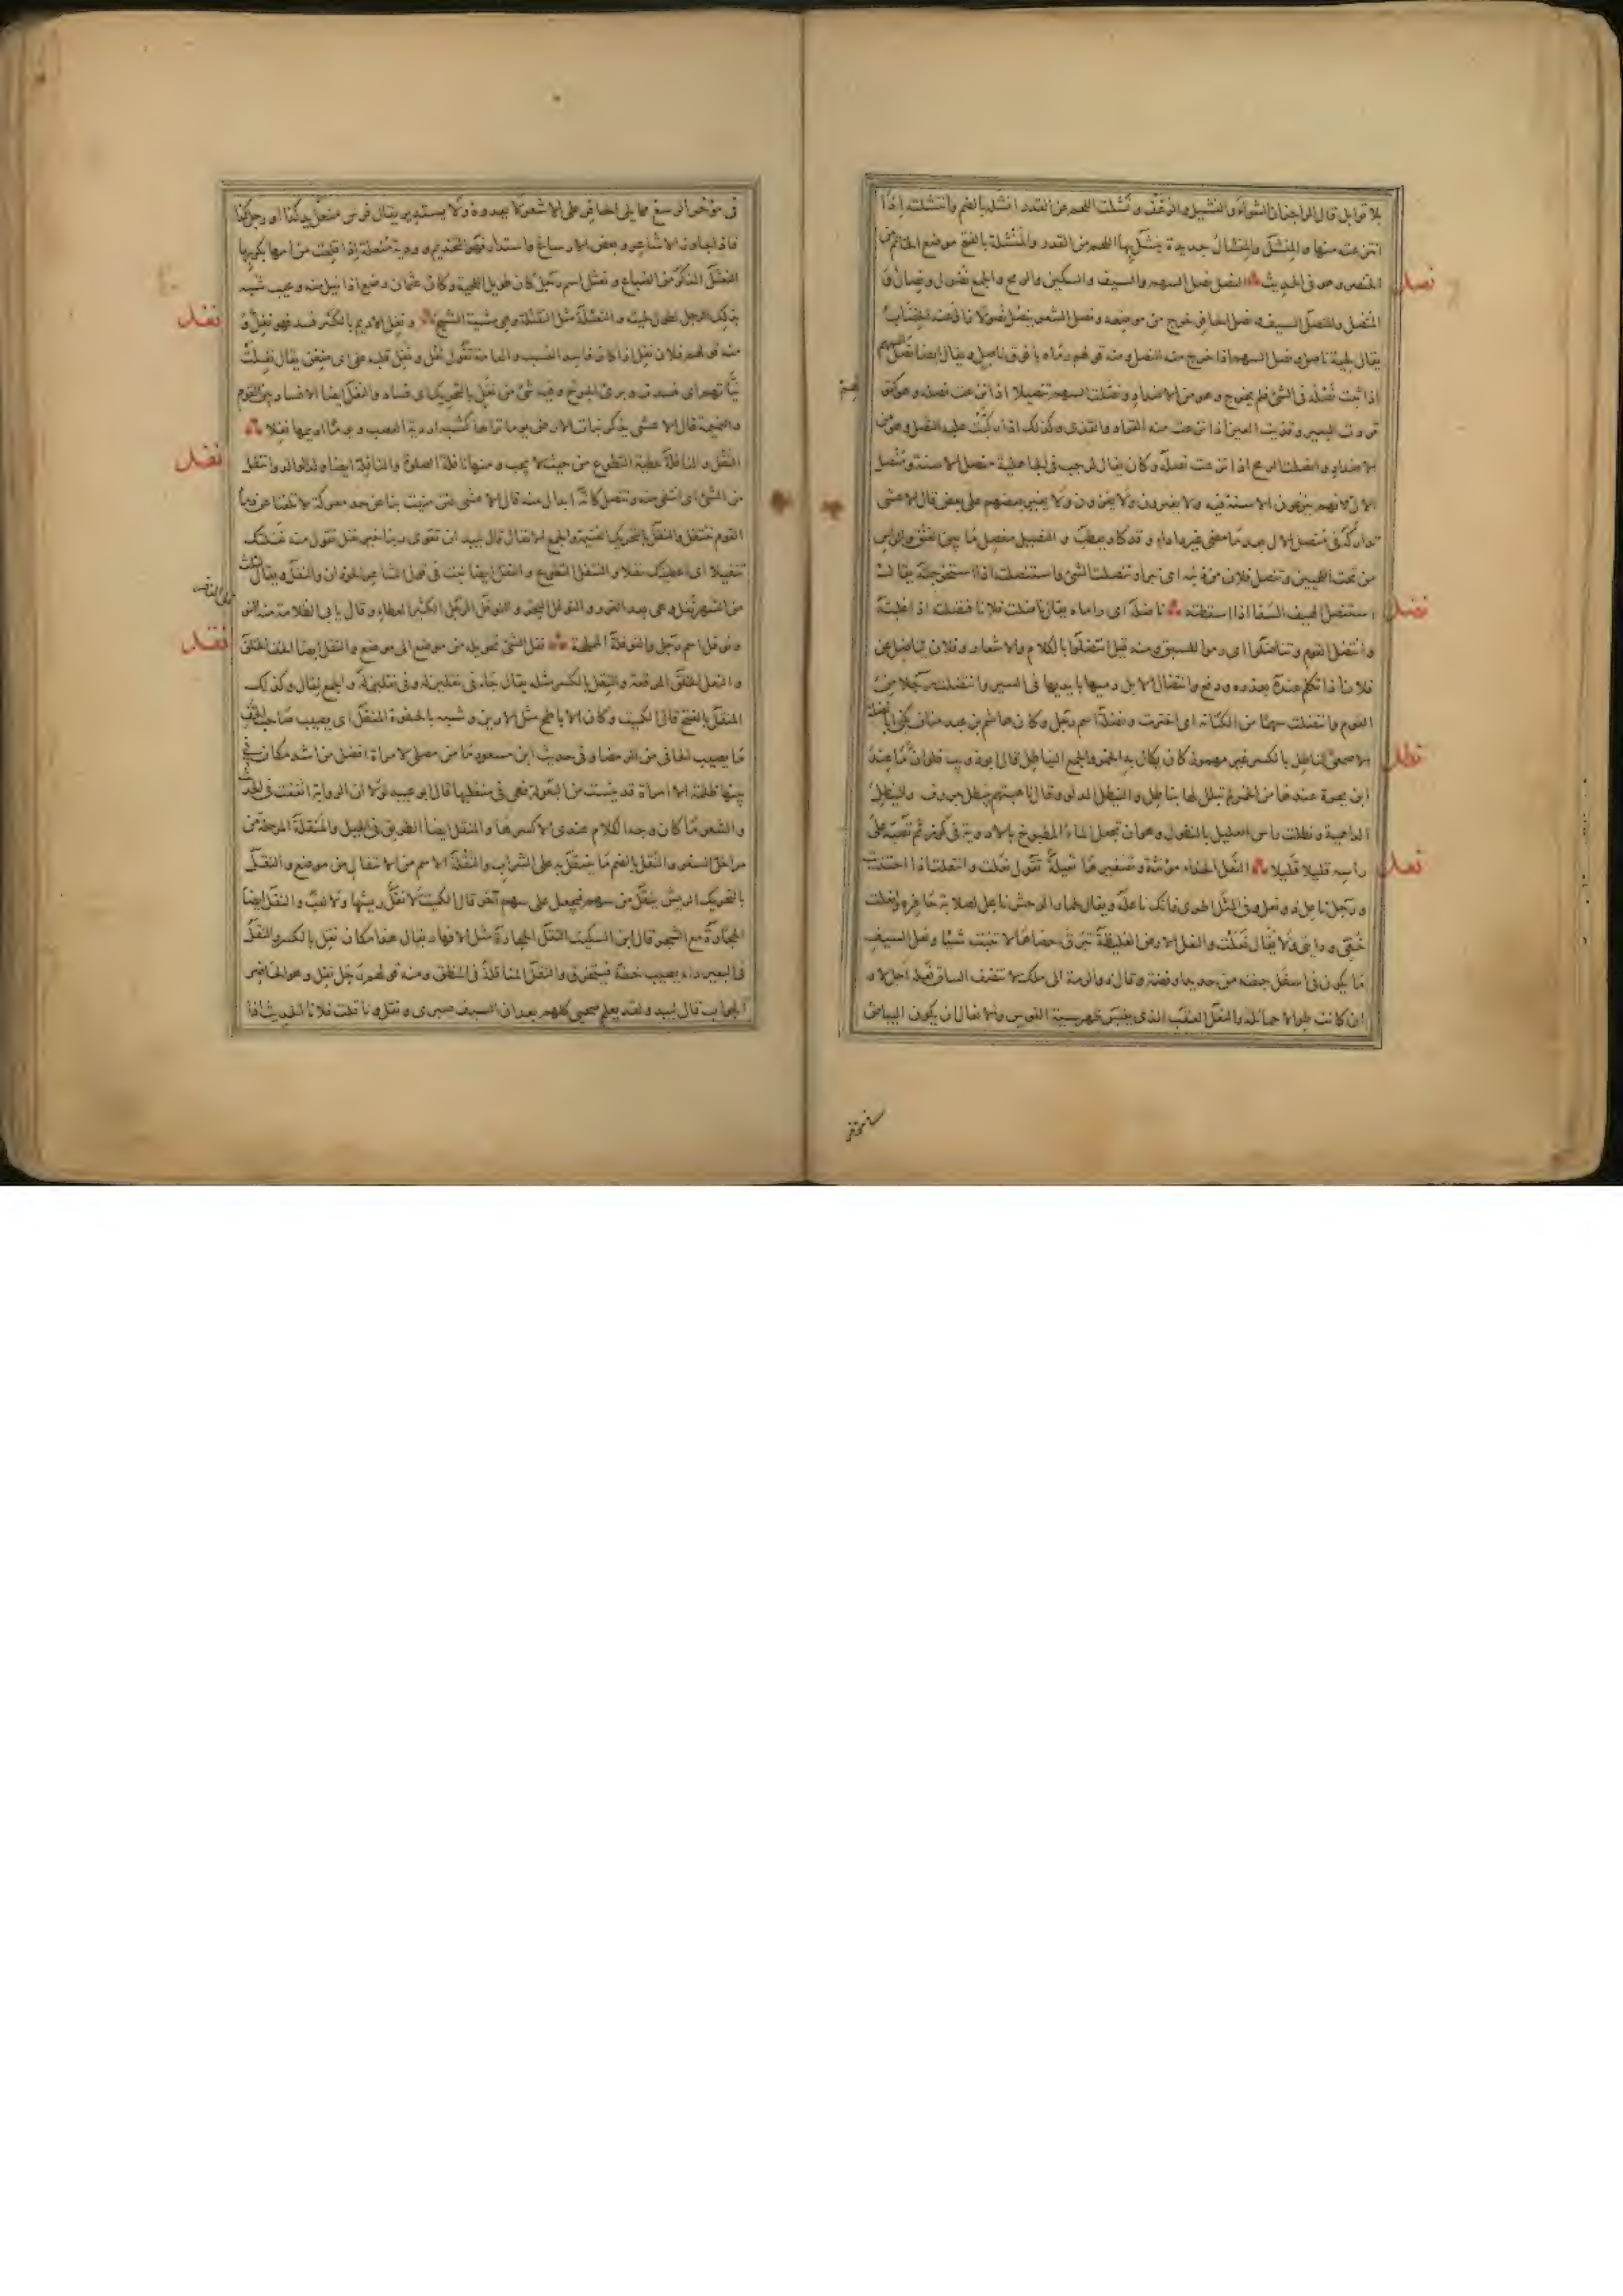 بلا توابل قال الراجز ان الشواء والنشيل والرغف ونشلت اللحم عن القدر انشله بالضم وانتشلته اذا
انتزعته منها والمنشل والمنشال حديدة ينشل بها اللحم من القدر والمنشلة بالفتح موضع الخاتم من
نصل
الخنصر وهو في الحديث النصل نصل السهم والسيف والسكين والرمح والجمع نصول ونصال و
المنصل والمنصل السيف ونصل الحافر خرج من موضعه ونصل الشعر ينصل نصولا زال عنه الخضاب
يقال لحية ناصل ونصل السهم اذا خرج منه النصل ومنه قولهم رماه بافوق ناصل ويقال ايضا نصل السهم
اذا ثبت نصله في الشئ فلم يخرج وهو من الاضداد ونصلت السهم تنصيلا اذا نزعت نصله وهو كقولك
قردت البعير وقذيت العين اذا نزعت منه القراد والقذى وكذلك اذا ركبت عليه النصل وهو من
الاضداد وانصلت الرمح اذا نزعت نصله وكان يقال لرجب في الجاهلية منصل الاسنة ومنصل
الال لانهم ينزعون الاسنة فيه ولا يغزون ولا يغير بعضهم على بعض قال الاعشى
تداركه في منصل الال بعد ما مضى غير دأداء وقد كاد يعطب والنصيل مفصل ما بين العنق والراس
من تحت اللحيين وتنصل فلان من ذنبه اى تبرأ وتنصلت الشئ واستنصلته اذا استخرجته يقال
نضل
استنصل الهيف السفا اذا اسقطه ناضله اى راماه يقال ناضلت فلانا فنضلته اذا غلبته
وانتضل القوم وتناضلوا اى رموا للسبق ومنه قيل انتضلوا بالكلام والاشعار وفلان يناضل عن
فلان اذا تكلم عنه بعذره ودفع وانتضال الابل رميها بايديها في السير وانتضلت رجلا من
القوم وانتضلت سهما من الكنانة اى اخترت ونضلة اسم رجل وكان هاشم بن عبد مناف يكنى ابا نضلة
نطل
الاصمعى الناطل بالكسر غير مهموز كوز كان يكال به الخمر والجمع النياطل قال ابو ذويب فلو ان ما عند
ابن بجرة عندها من الخمر لم تبلل لهاتى بناطل والنيطل الدلو وقال ناهبتهم بنيطل جروف والنيطل
الداهية ونطلت راس العليل بالنطول وهو ان تجعل الماء المطبوخ بالادوية في كوز ثم تصبه على
نعل
راسه قليلا قليلا النعل الحذاء مؤنثة وتصغيرها نعيلة تقول نعلت وانتعلت اذا احتذيت
ورجل ناعل ذو نعل وفي المثل اطرى فانك ناعلة ويقال لحمار الوحش ناعل لصلابة حافره وانعلت
خفى ودابتى ولا يقال نعلت والنعل الارض الغليظة يبرق حصاها لا تنبت شيئا ونعل السيف
ما يكون في اسفل جفنه من حديد او فضة وقال ذو الرمة الى ملك لا تنصف الساق نعله اجل لا و
ان كانت طوالا حمائله والنعل العقب الذى يلبس ظهر سية القوس والانعال ان يكون البياض
في مؤخر الرسغ مما يلى الحافر على الاشعر لا يعدوه ولا يستدير يقال فرس منعل يد كذا او رجل كذا
فاذا جاوز الاشاعر وبعض الارساغ واستدار فهو التخديم وودية منعلة اذا قلعت من امها بكربها
النعثل الذكر من الضباع ونعثل اسم رجل كان طويل اللحية وكان عثمان رضع اذا نيل منه وعيب شبه
نغل
بذلك الرجل لطول لحيته والنعثلة مثل النقثلة وهى مشية الشيخ ونغل الاديم بالكسر فسد فهو نغل و
منه قولهم فلان نغل اذا كان فاسد النسب والعامة تقول نغل ونغل قلبه على اى ضغن يقال نغلت
نياتهم اى فسدت وبرئ الجرح وفيه شئ من نغل بالتحريك اى فساد والنغل ايضا الافساد بين القوم
والنميمة قال الاعشى يذكر نبات الارض يوما تراها كشبه اردية العصب ويوما اديمها نغلا
نفل
النفل والنافلة عطية التطوع من حيث لا يجب ومنه نافلة الصلوة والنافلة ايضا ولد الولد وانتفل
من الشئ اى انتفى منه وتنصل كانه ابدال منه قال الاعشى لئن منيت بنا عن جد معركة لا تلفنا عن دماء
القوم ننتفل والنفل بالتحريك الغنيمة والجمع الانفال قال لبيد ان تقوى ربنا خير نفل تقول منه نفلتك
تنفيلا اى اعطيتك نفلا والتنفل التطوع والنفل ايضا نبت في قول الشاعر الحوذان والنفل ويقال لثلث
من الشهر نفل وهى بعد الغرر والنوفل البحر والنوفل الرجل الكثير العطاء وقال يابى الظلامة منه النو
نقل
ونوفل اسم رجل والنوفلة المملحة نقل الشئ تحويله من موضع الى موضع والنقل ايضا الخف الخلق
والنعل الخلق المرقعة والنقل بالكسر مثله يقال جاء في نقلين له وفي نقلين له والجمع نقال وكذلك
المنقل بالفتح قال الكميت وكان الاباطح مثل الارين وشبه بالحفوة المنقل اى يصيب صاحب الخف
ما يصيب الحافى من الرمضاء وفي حديث ابن مسعود ما من مصلى لامراة افضل من اشد مكان في
بيتها ظلمة الا امراة قد يئست من البعولة فهى في منقليها قال ابو عبيد لولا ان الرواية اتفقت في الحديث
والشعر ما كان وجه الكلام عندى الا كسرها والمنقل ايضا الطريق في الجبل والمنقلة المرحلة من
مراحل السفر والنقل بالضم ما يتنقل به على الشراب والنقلة الاسم من الانتقال من موضع والنقل
بالتحريك الريش ينقل من سهم فيجعل على سهم آخر قال الكميت لا نقل ريشها ولا لغب والنقل ايضا
الحجارة مع الشجر قال ابن السكيت النقل الحجارة مثل الافهار يقال هذا مكان نقل بالكسر والنقل
في البعير داء يصيب خفه فيتخرق والنقل المناقلة في المنطق ومنه قولهم رجل نقل وهو الحاضر
الجواب قال لبيد ولقد يعلم صحبى كلهم بعدان السيف صبرى ونقل وناقلت فلانا الحديث اذا
في مؤخر